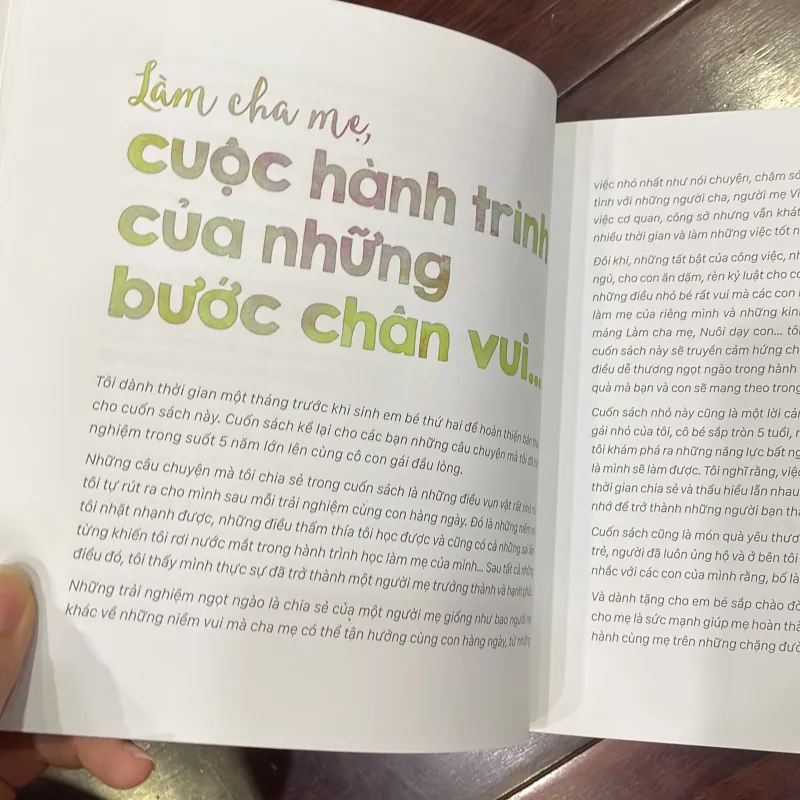 Làm cha mẹ,
cuộc hành trình
của những
bước chân vui...
Tôi dành thời gian một tháng trước khi sinh em bé thứ hai để hoàn thiện bản
cho cuốn sách này. Cuốn sách kể lại cho các bạn những câu chuyện mà tôi đã
nghiệm trong suốt 5 năm lớn lên cùng cô con gái đầu lòng.
Những câu chuyện mà tôi chia sẻ trong cuốn sách là những điều vụn vặt rất nhỏ mà
tôi tự rút ra cho mình sau mỗi trải nghiệm cùng con hàng ngày. Đó là những niềm vui
tôi nhặt nhạnh được, những điều thấm thía tôi học được và cũng có cả những sai lầm
từng khiến tôi rơi nước mắt trong hành trình học làm mẹ của mình... Sau tất cả những
điều đó, tôi thấy mình thực sự đã trở thành một người mẹ trưởng thành và hạnh phúc.
Những trải nghiệm ngọt ngào là chia sẻ của một người mẹ giống như bao người mẹ
khác về những niềm vui mà cha mẹ có thể tận hưởng cùng con hàng ngày, từ những
việc nhỏ nhất như nói chuyện, chăm
tình với những người cha, người mẹ
việc cơ quan, công sở nhưng vẫn khát
nhiều thời gian và làm những việc tốt
Đôi khi, những tất bật của công việc,
ngủ, cho con ăn dặm, rèn kỷ luật cho
những điều nhỏ bé rất vui mà các con
làm mẹ của riêng mình và những
mảng Làm cha mẹ, Nuôi dạy con...
cuốn sách này sẽ truyền cảm hứng
điều dễ thương ngọt ngào trong hành
quà mà bạn và con sẽ mang theo trong
Cuốn sách nhỏ này cũng là một lời
gái nhỏ của tôi, cô bé sắp tròn 5 tuổi,
tôi khám phá ra những năng lực bất
là mình sẽ làm được. Tôi nghĩ rằng,
thời gian chia sẻ và thấu hiểu lẫn nhau
nhớ để trở thành những người bạn
Cuốn sách cũng là món quà yêu
trẻ, người đã luôn ủng hộ và ở bên tôi
nhắc với các con của mình rằng, bố là
Và dành tặng cho em bé sắp chào
cho mẹ là sức mạnh giúp mẹ hoàn
hành cùng mẹ trên những chặng